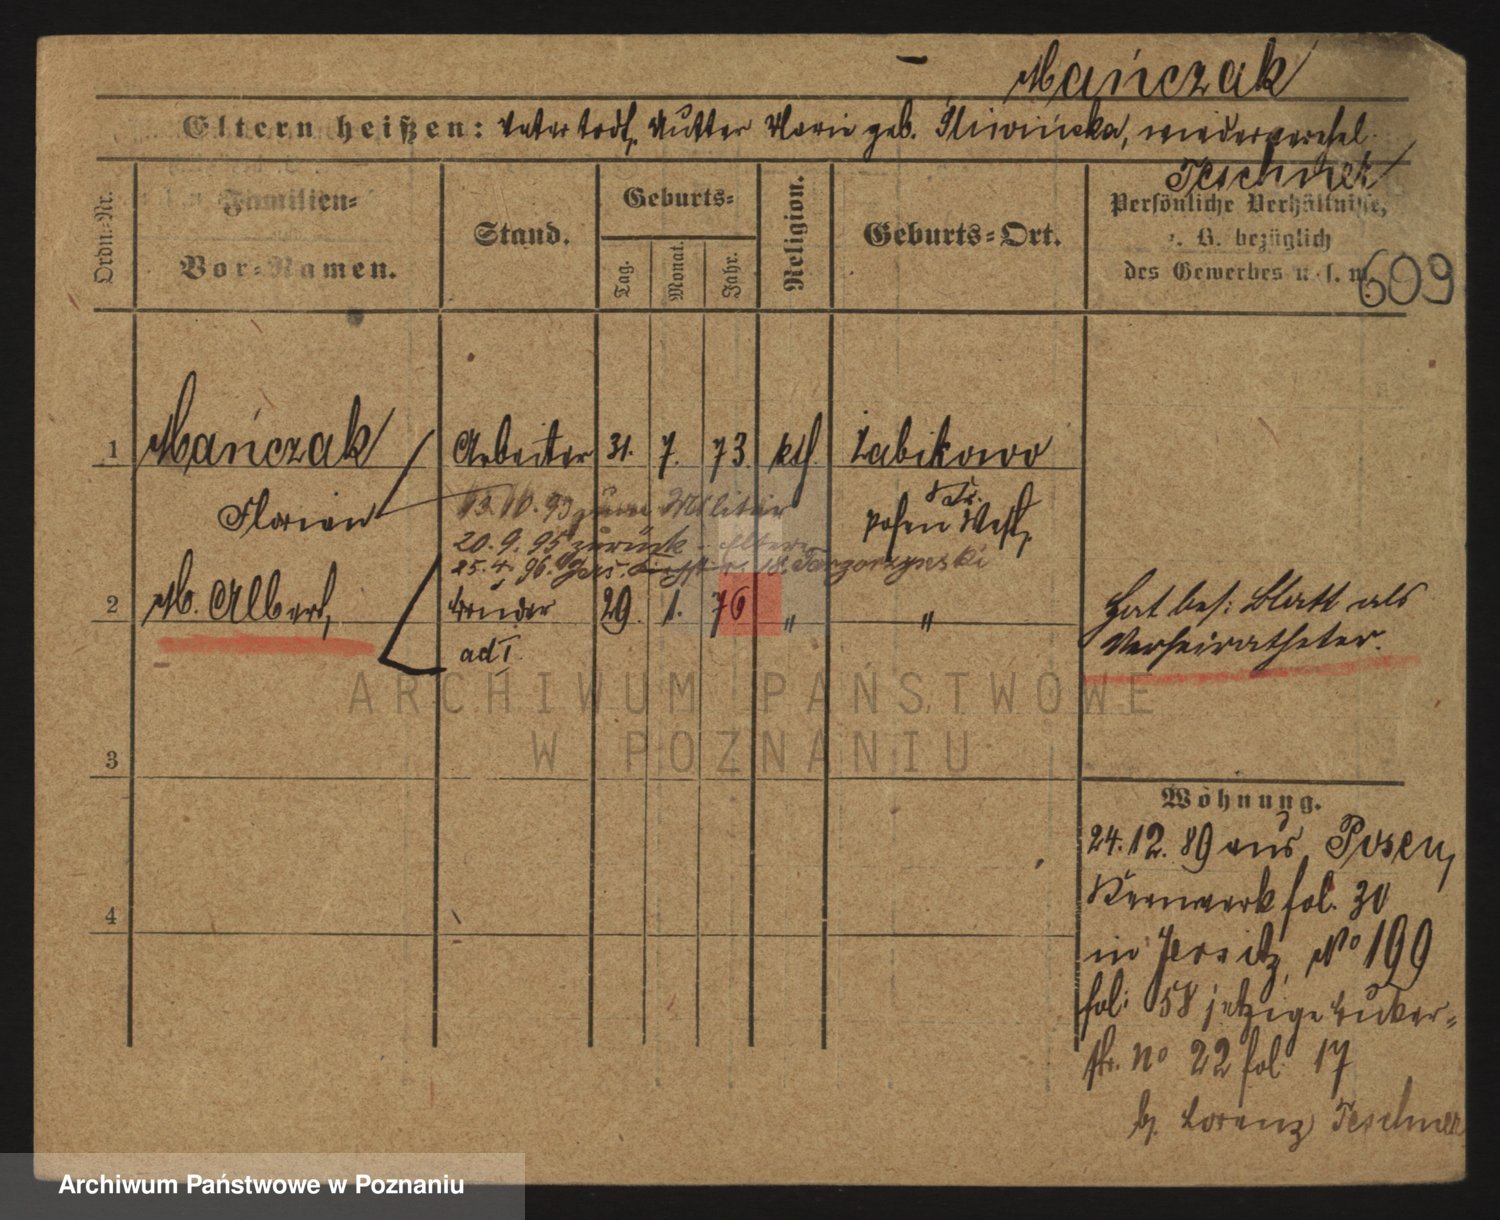 Mańczak
Eltern heißen: Vater todt, Mutter Marie geb. Śliwińska, wiederverehel.
Teschner
Ordn.-Nr.
Familien-
Vor-Namen.
Stand.
Geburts-
Tag.
Monat.
Jahr.
Religion.
Geburts-Ort.
Persönliche Verhältnisse,
z. B. bezüglich
des Gewerbes u. s. w.
609
1 Mańczak Arbeiter 31. 7. 73. kth. Zabikowo
Florian 13.10.93 zum Militär
Posen West,
20.9.95 zurück
25.4.96. 18.
2 M. Albert, Bruder 29. 1. 76 " "
ad I
Hat bes: Blatt als
Verheiratheter.
3
4
Wohnung.
24.12.89 aus Posen,
Kernwerk fol. 30
in Jersitz, No 199
fol: 58 jetzige
str. No 22 fol 17
b. Lorenz Teschner
ARCHIWUM PAŃSTWOWE
W POZNANIU
Archiwum Państwowe w Poznaniu